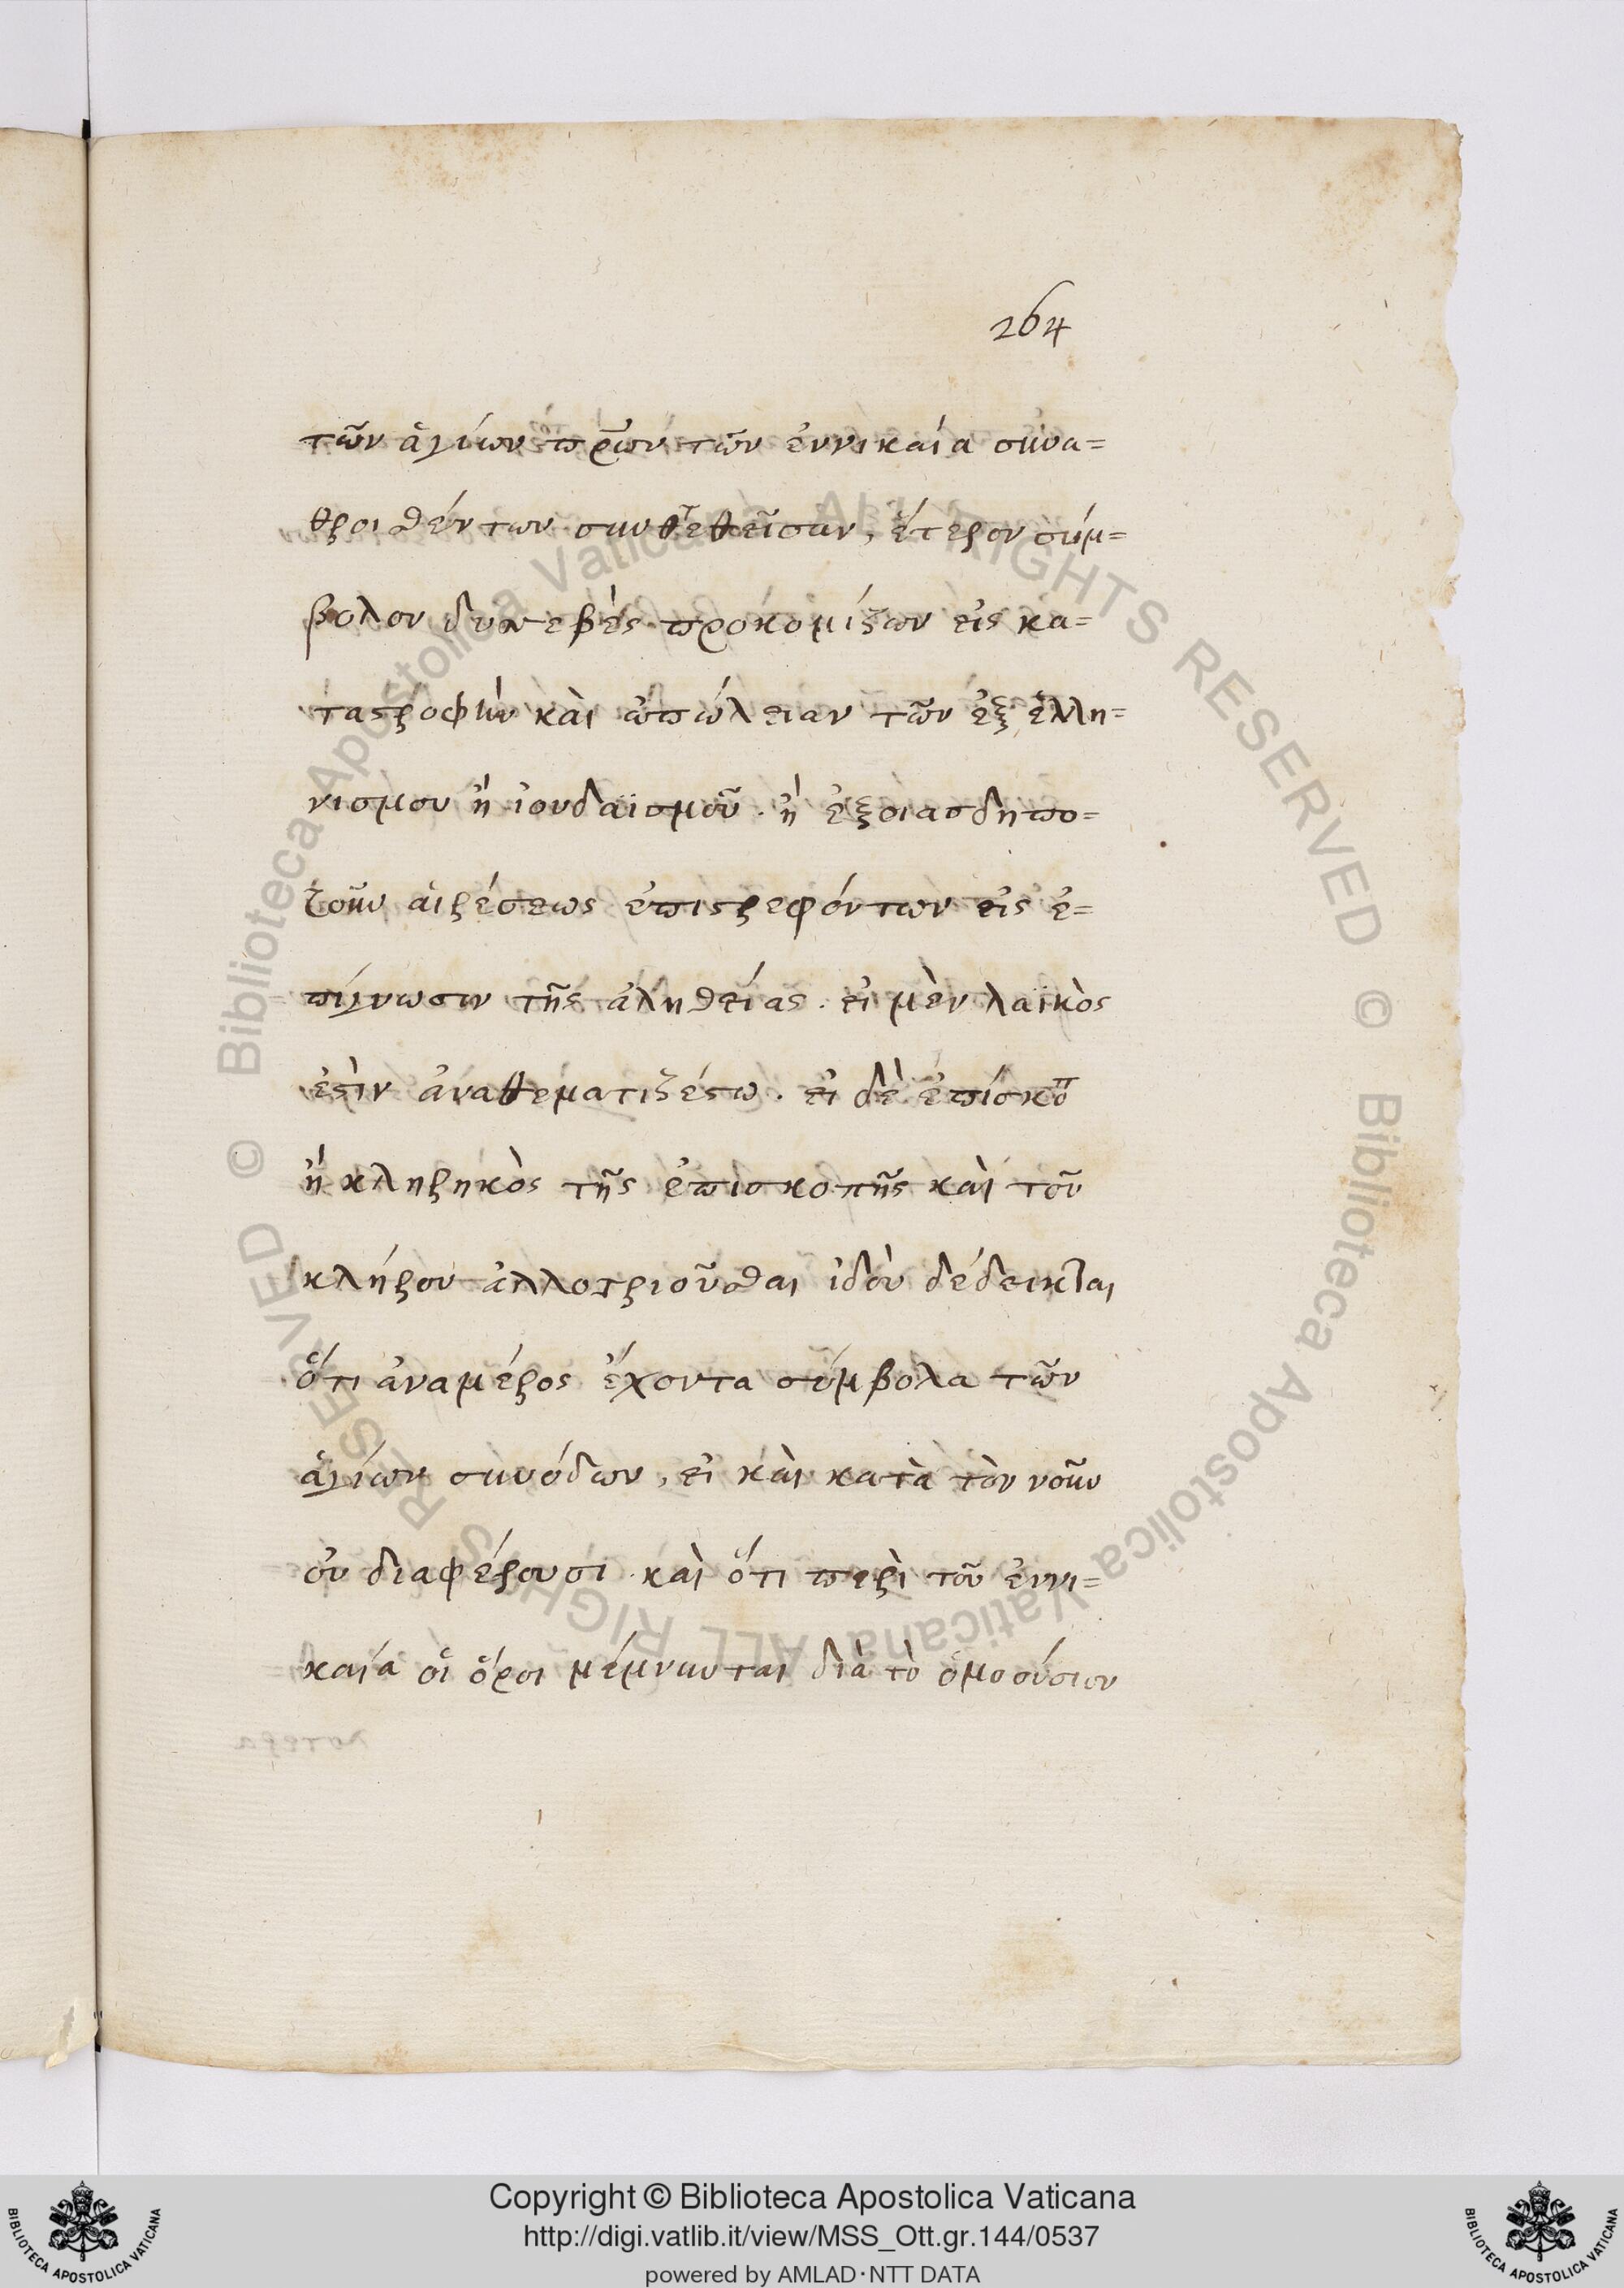 264
τῶν ἁγίων π̅ρ̅ων τῶν ἐννικαία συνα=
θροισθέντων συντεθεῖσαν, ἕτερον σύμ=
βολον δυσσεβὲς προκομίζων εἰς κα=
ταστροφὴν καὶ ἀπώλειαν τῶν ἐξ ἑλλη=
νισμου ἢ ἰουδαϊσμοῦ . ἢ ἐξοιασδηπο=
τοῦν αἱρέσεως ἐπιστρεφόντων εἰς ἐ=
πίγνωσιν τῆς ἀληθείας . εἰ μὲν λαϊκὸς
ἐστὶν ἀναθεματιζέστω . εἰ δὲ ἐπίσκοπ
ἢ κληρηκὸς τῆς ἐπισκοπῆς καὶ τοῦ
κλήρου ἀλλοτριοῦσθαι ἰδοὺ δέδεικται
ὅτι ἀναμέρος ἔχοντα σύμβολα τῶν
ἁγίων συνόδων, εἰ καὶ κατὰ τὸν νοῦν
οὐ διαφέρουσι . καὶ ὅτι περὶ τοῦ ἐννι=
καία οἱ ὅροι μέμνυνται διὰ τὸ ὁμοούσιον
Copyright © Biblioteca Apostolica Vaticana
http://digi.vatlib.it/view/MSS_Ott.gr.144/0537
powered by AMLAD·NTT DATA
© Biblioteca Apostolica Vaticana ALL RIGHTS RESERVED © Biblioteca Apostolica Vaticana ALL RIGHTS RESERVED
BIBLIOTECA APOSTOLICA VATICANA
BIBLIOTECA APOSTOLICA VATICANA